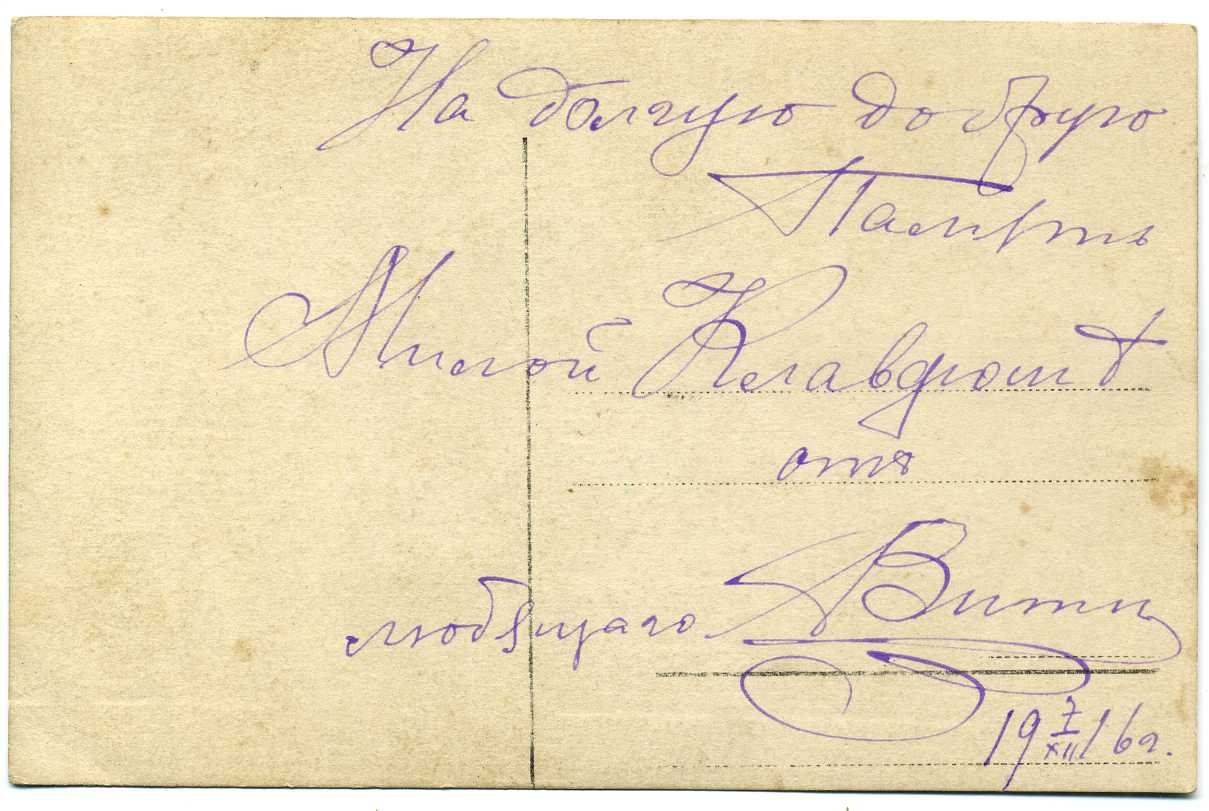 На долгую добрую
Память
Милой Клавдюшѣ
отъ
любящаго Вити
19 7/XII 16 г.